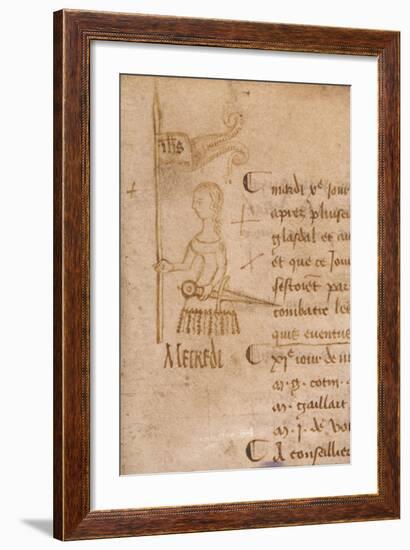 ihs
Mecredi
mardi x^e jour
apres pluseu
glasdal et au
et que ce Jour
sestoient par
combatre les
quis eventus
xj^e jour de m
m. g. cotin
m. gaillart
m. J. de vo
A conseillier